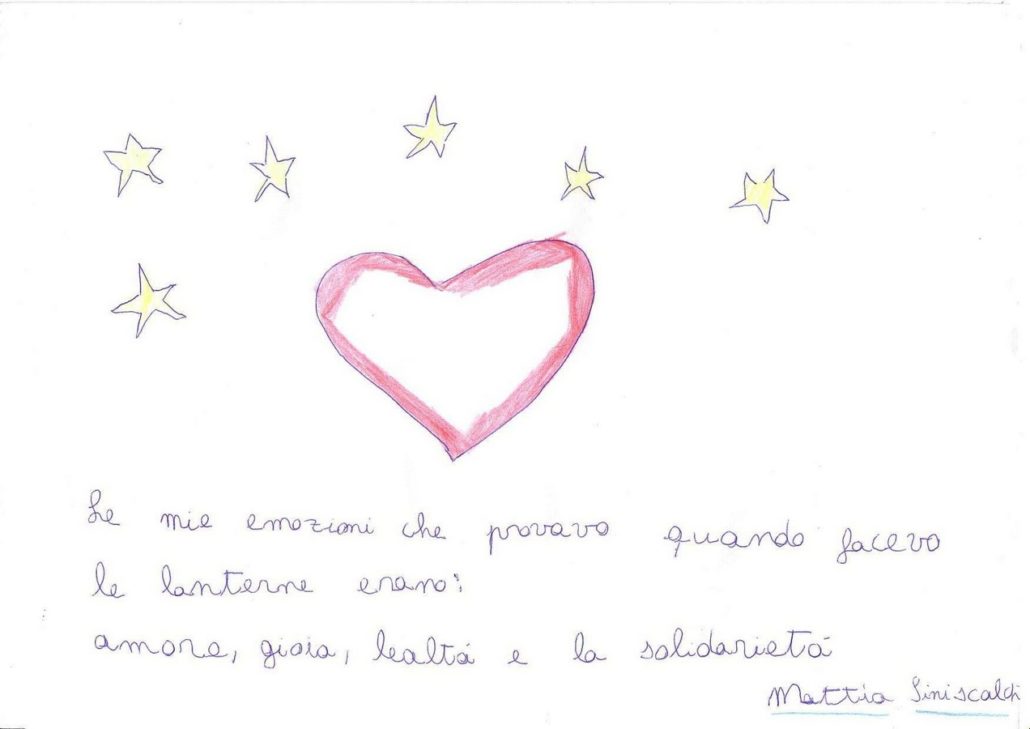 Le mie emozioni che provavo quando facevo
le lanterne erano:
amore, gioia, lealtá e la solidarietá
Mattia Siniscalchi